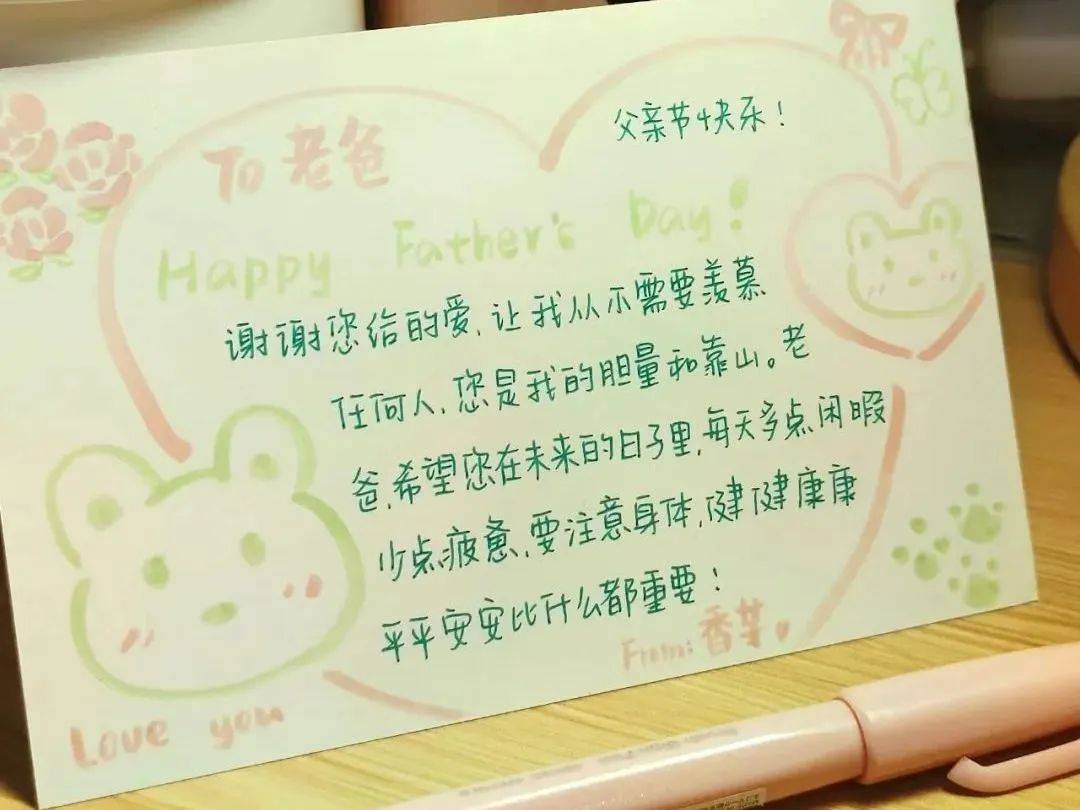 父亲节快乐！
To 老爸
Happy Father's Day!
谢谢您给的爱，让我从不需要羡慕
任何人，您是我的胆量和靠山。老
爸，希望您在未来的日子里，每天多点闲暇
少点疲惫，要注意身体，健健康康
平平安安比什么都重要！
From: 香芋
Love you